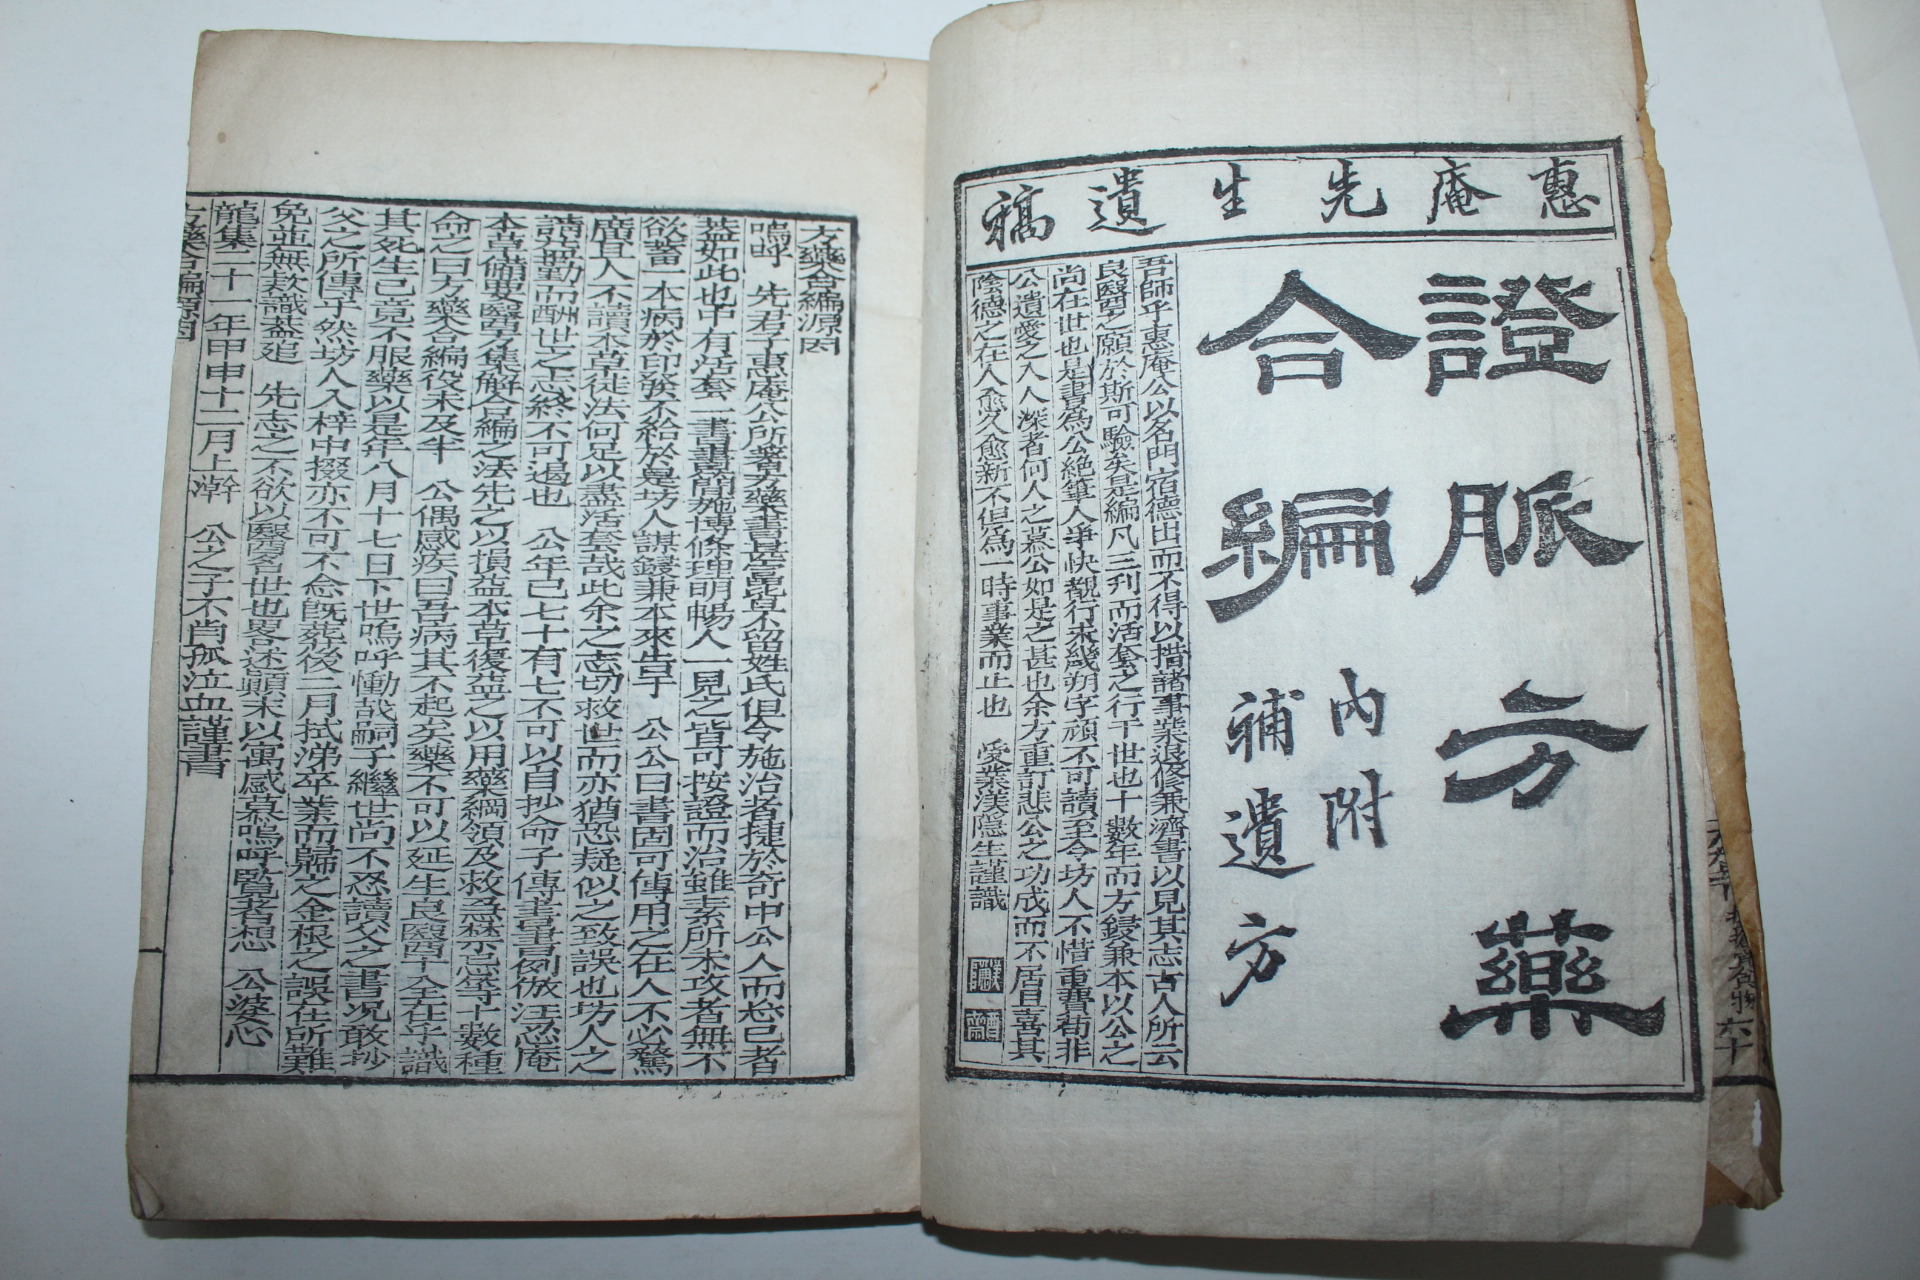 惠庵先生遺稿
證脈方藥
合編
內附
補遺方
吾師乎惠庵公以名門宿德出而不得以措諸事業退修兼濟書以見其志古人所云
良醫之願於斯可驗矣是編凡三刋而活套之行于世也十數年而方鋟兼本以公之
尚在世也是書爲公絶筆人爭快覩行未幾朔字頑不可讀至今坊人不惜重費苟非
公遺愛之入人深者何人之慕公如是之甚也余方重訂悲公之功成而不居且喜其
陰德之在人愈久愈新不但爲一時事業而止也 愛業渼隱生謹識
方藥合編源因
嗚呼 先君子惠庵公所著方藥書甚富皆不留姓氏俱令施治者捷於奇中公人而忘己者
蓋如此也中有活套一書書簡施博條理明暢人一見之皆可按證而治雖素所未攻者無不
欲蓄一本病於印發不給於是坊人謀鋟兼本來告于 公公曰書固可傳用之在人不必騖
廣且人不讀本草徒法何足以盡活套哉此余之志切救世而亦猶恐疑似之致誤也坊人之
請益勤而酬世之志終不可遏也 公年已七十有七不可以自抄命子傳書書例倣汪忍庵
本草備要醫方集解合編之法先之以損益本草復益之以用藥綱領及救急禁忌等十數種
命之曰方藥合編役未及半 公偶感疾曰吾病其不起矣藥不可以延生良醫十全在乎識
其死生已竟不服藥以是年八月十七日下世嗚呼慟哉嗣子繼世尚不忍讀父之書况敢抄
父之所傳乎然坊人入梓中掇亦不可不念旣葬後二月拭涕卒業而歸之金根之誤在所難
免並無欺識益追 先志之不欲以醫名世也畧述顚末以寓感慕嗚呼覽者想 公婆心
龍集二十一年甲申十二月上澣 公之子不肖孤泣血謹書
方藥合編源因